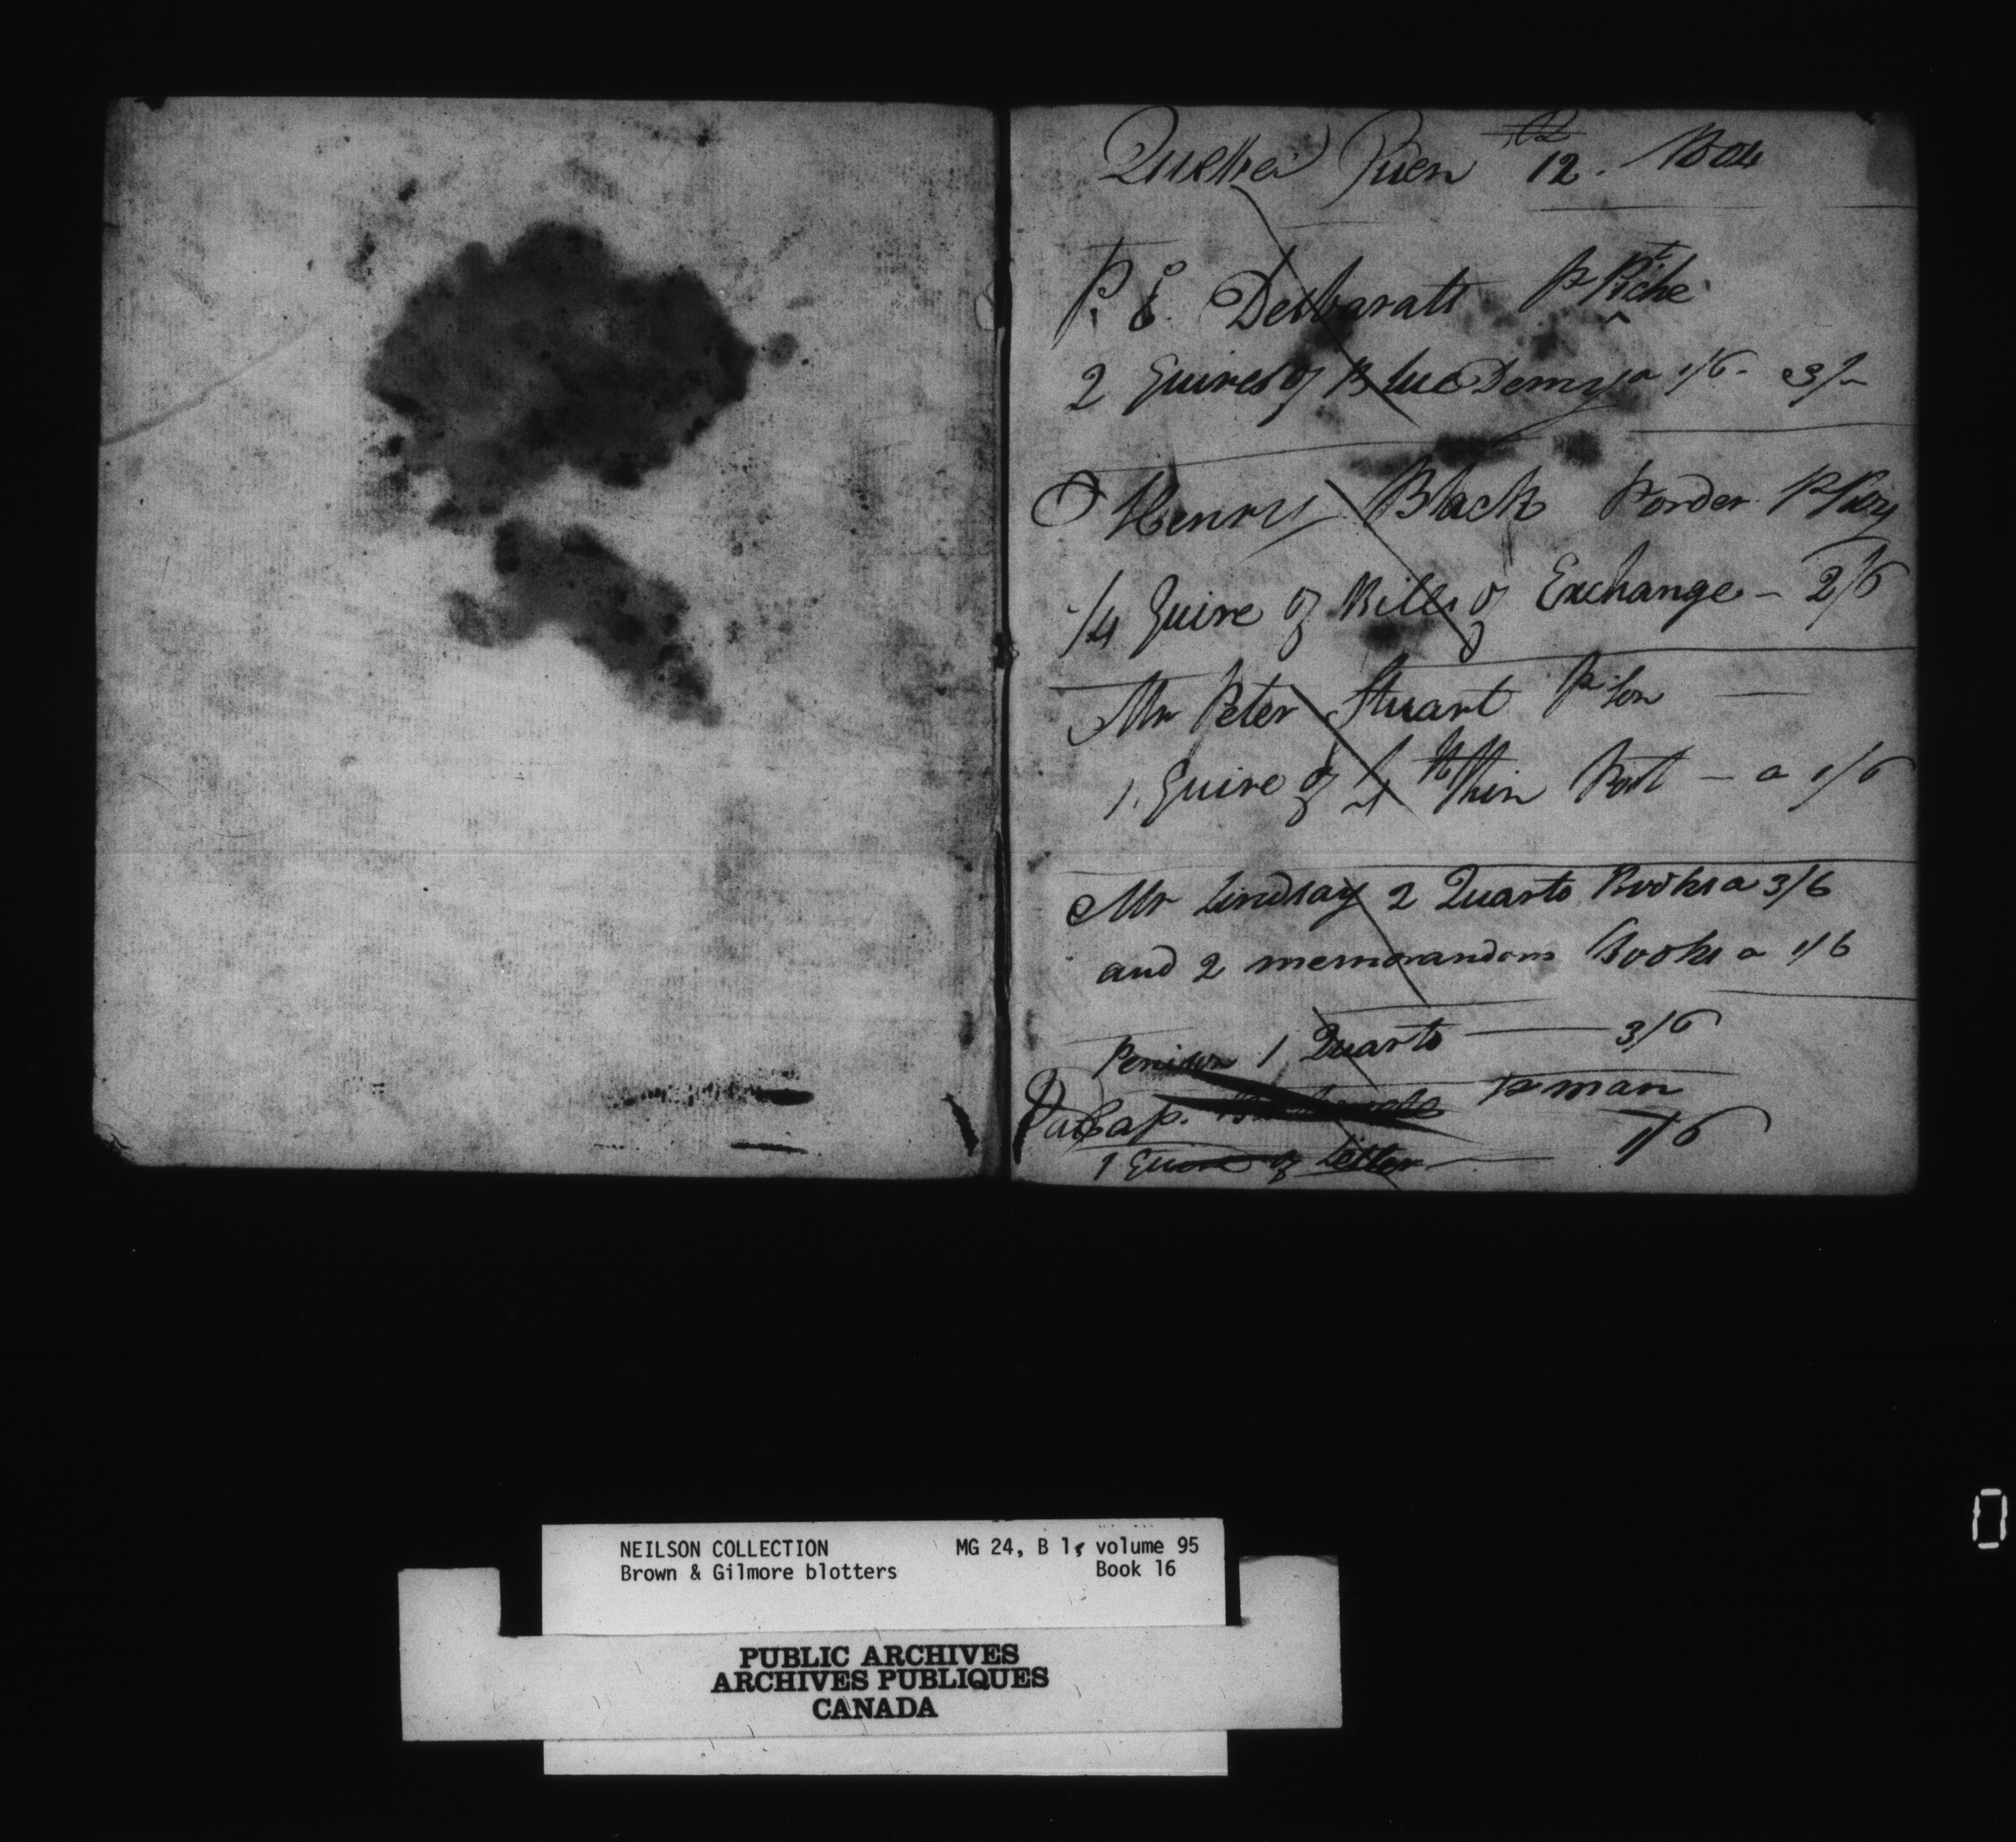 12. 1804
P. E. Desbarats P Pitche
2 Quires of Blue Demy a 1/6 - 3/-
Henry Black P order P Roy
1/4 Quire of Bills of Exchange - 2/6
Mr Peter Stuart P Son
1 Quire of 4to thin Post - a 1/6
Mr Lindsay 2 Quarto Books a 3/6
and 2 memorandom Books a 1/6
1 Quarto 3/6
Cap. P man
1 Quire of letter 1/6
NEILSON COLLECTION MG 24, B 1, volume 95
Brown & Gilmore blotters Book 16
PUBLIC ARCHIVES
ARCHIVES PUBLIQUES
CANADA
0